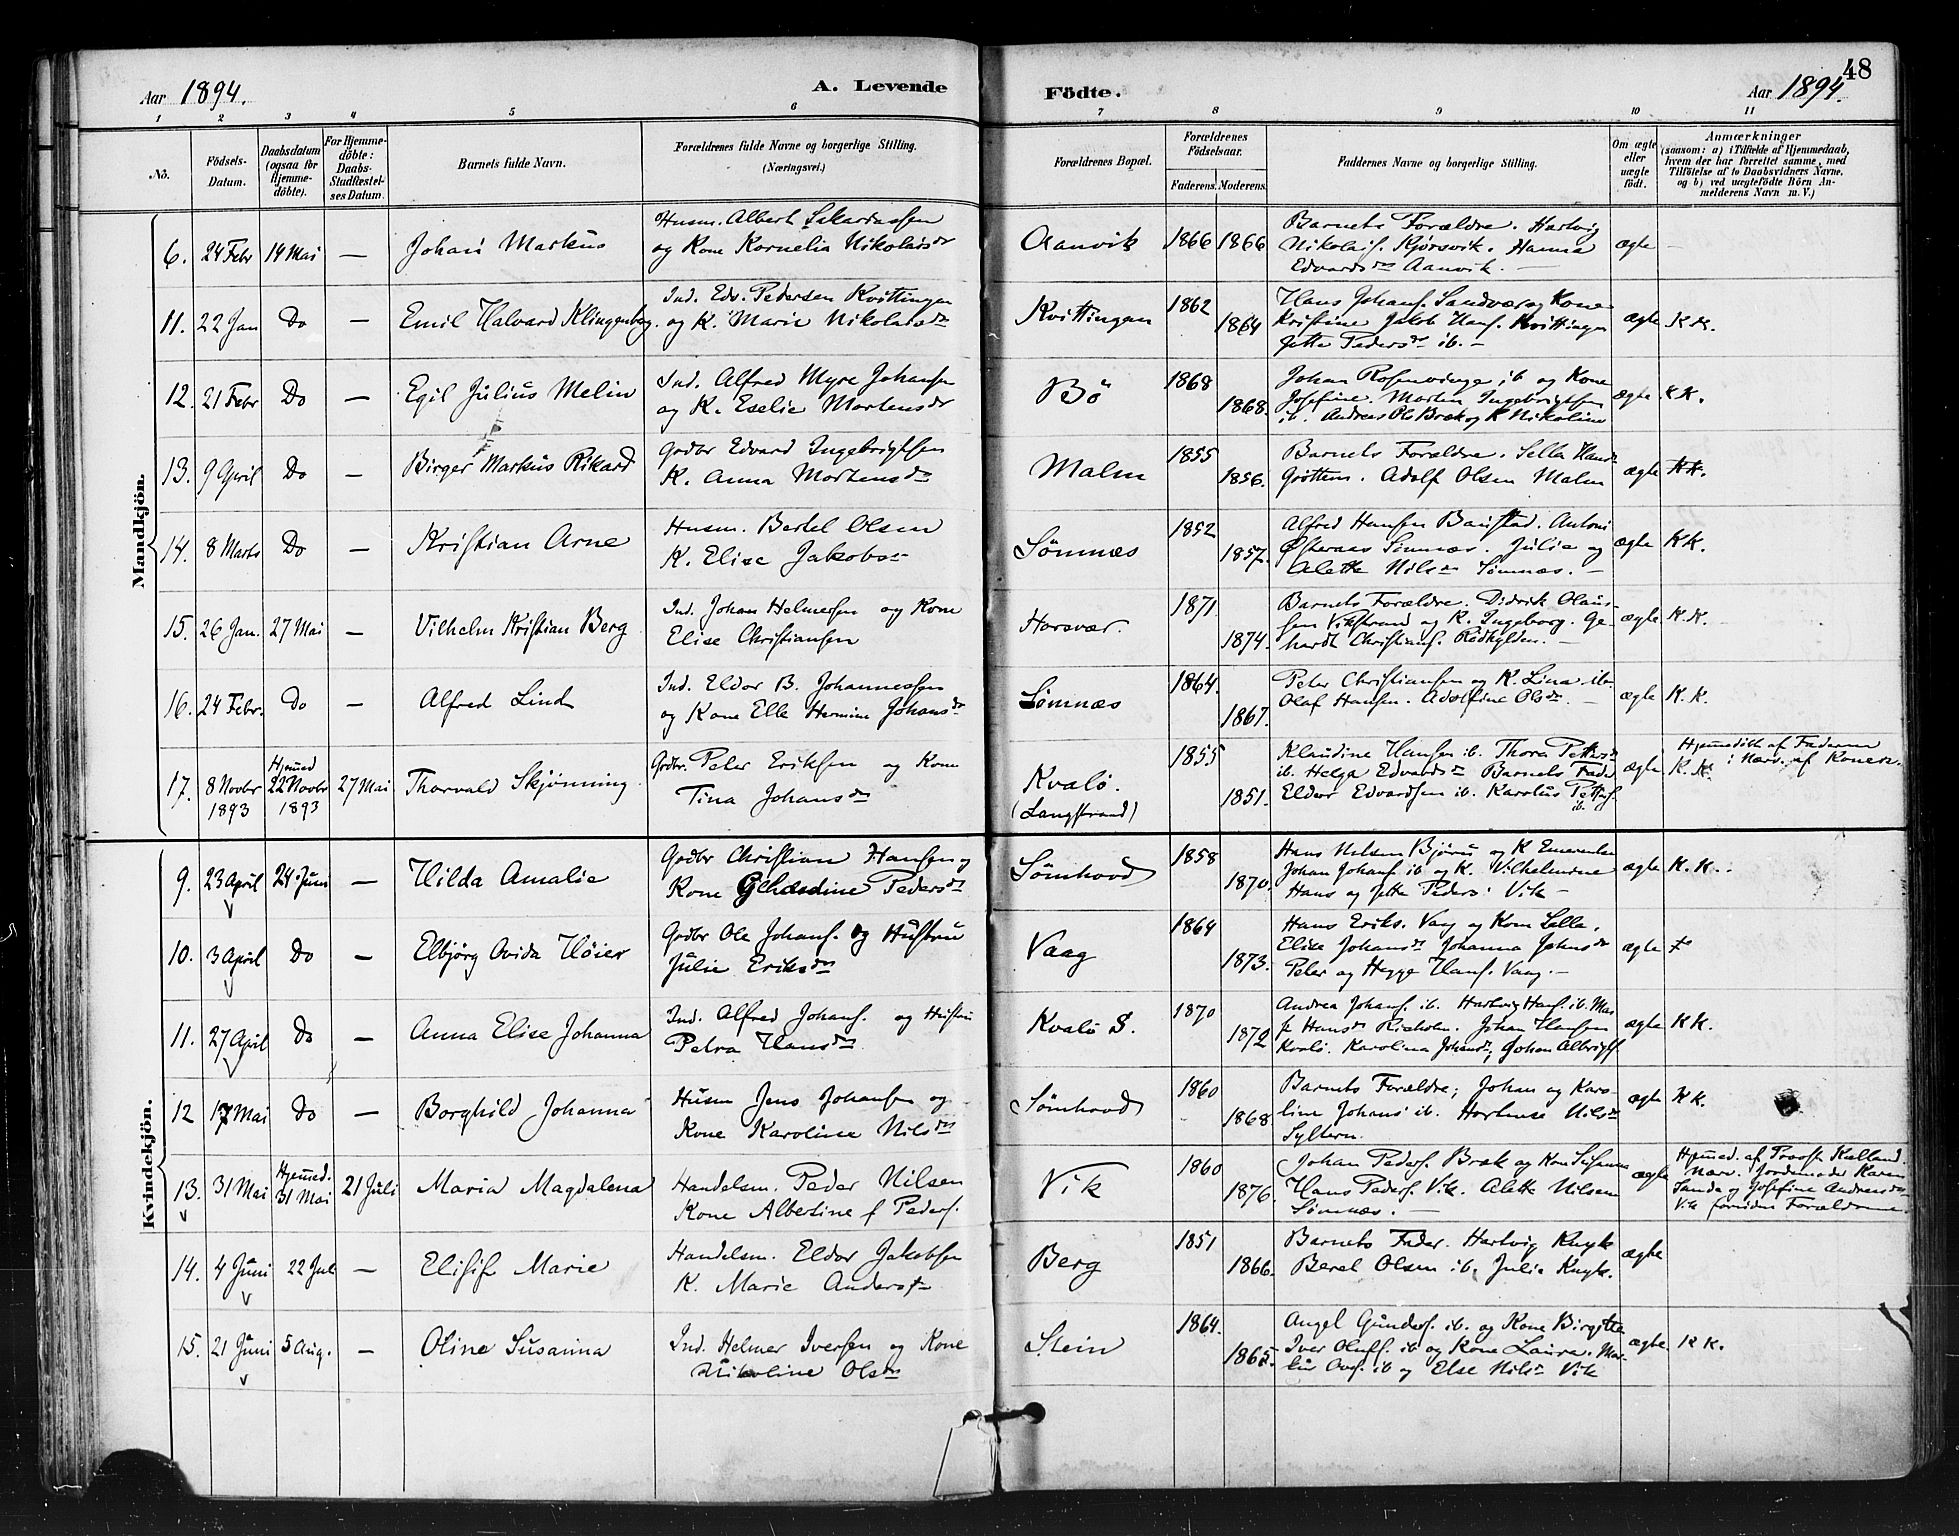 48
Aar 1894.
A. Levende
Födte.
Aar 1894.
1 2 3 4 5 6 7 8 9 10 11
Nö.
Födsels-Datum.
Daabsdatum (ogsaa for Hjemme-döbte).
For Hjemme-döbte: Daabs-Stadfæstel-ses Datum.
Barnets fulde Navn.
Forældrenes fulde Navne og borgerlige Stilling.
(Næringsvei.)
Forældrenes Bopæl.
Forældrenes Födselsaar.
Faderens. Moderens.
Faddernes Navne og borgerlige Stilling.
Om ægte eller uægte födt.
Anmærkninger
(saasom: a) i Tilfælde af Hjemmedaab, hvem der har forrettet samme, med Tilföielse af to Daabsvidners Navne, og b) ved uægtefödte Börn An-melderens Navn m. V.)
Mandkjön.
6. 24 Febr 14 Mai — Johan Markus
Husm. Albert Sakariassen
og Kone Kornelia Nikolaisdr
Aanvik 1866 1866
Barnets Forældre. Hartvig
Nikolais. Kjørsvik. Hanna
Edvardsdr Aanvik. —
ægte —
11. 22 Jan Do — Emil Halvard Klingenberg.
Ind. Edv. Pedersen Kvittingen
og K. Marie Nikolaisdr
Kvittingen 1862 1864
Hans Johans. Sandvær og Kone
Kristine Jakob Hans. Kvittingen
Jette Pedersdr ib. —
ægte K.K.
12. 21 Febr Do — Egil Julius Melin
Ind. Alfred Myre Johansen
og K. Eselie Mortensdr
Bö 1868 1868.
Johan Rosenvinge ib og Kone
Josefine. Morten Ingebrigtsen
ib. Andreas Ols Bræk og K Nikoline
ægte K.K.
13. 9 April Do — Birger Markus Rikard
Gdbr Edvard Ingebrigtsen
K. Anna Mortensdr
Malm 1855 1856.
Barnets Forældre. Sella Hansdr
Grøttem. Adolf Olsen Malm
ægte K.K.
14. 8 Marts Do — Kristian Arne
Husm. Bertel Olsen
K. Elise Jakobs
Sømnæs 1852 1857.
Alfred Hansen Baustad. Antoni
Østeraas Sømnæs. Julie og
Alette Nilsdr Sømnæs. —
ægte K K.
15. 26 Jan. 27 Mai — Vilhelm Kristian Berg
Ind. Johan Helmersen og Kone
Elise Christiansen
Horsvær. 1871. 1874.
Barnets Forældre. Didrik Olaus-
sen Vikstrand og K. Ingeborg. Ge-
hardt Christians. Rødhylden. —
ægte K.K.
16. 24 Febr. Do — Alfred Lind
Ind. Eldor B. Johannessen
og Kone Elle Hermine Johansdr
Sømnæs 1864. 1867.
Peter Christiansen og K. Lina ib.
Olaf Hansen. Adolfine Olsdr. —
ægte K.K.
17. 8 Novbr 1893 Hjemmed 22 Novbr 1893 27 Mai Thorvald Skjønning
Gdbr. Peter Eriksen og Kone
Tina Johansdr
Kvalö. (Langstrand) 1855 1851.
Klaudine Hansen ib. Thora Pettersdr
ib. Helga Edvardsdr Barnets Fader
Eldor Edvardsen ib. Karolus Petters. ib.
ægte K.K.
Hjemmedöbt af Faderen
i Nærv. af Konen.
Kvindekjön.
9. 23 April 24 Juni — Hilda Amalie
Gdbr Christian Hansen og
Kone Gerhardine Pedersdr
Sømhovd 1858 1870.
Hans Nilsen Bjøru og K Emerentse
Johan Johans ib og K. Vilhelmine
Hans og Jette Peders. Vik —
ægte K.K.
10. 3 April Do — Elbjörg Ovida Höier
Gdbr Ole Johans. og Hustru
Julie Eriksdr
Vaag 1864 1873.
Hans Eriks. Vaag og Kone Sella.
Elise Johansdr Johanna Johnsdr
Peter og Hegge Hans. Vaag. —
ægte
11. 27 April Do — Anna Elise Johanna
Ind. Alfred Johans. og Hustru
Petra Hansdr
Kvalö S. 1870 1872
Andrea Johans. ib. Hartvig Hans. ib. Mar-
Hansdr Risholm. Johan Hansen
Kvalö. Karolina Johansdr, Johan Albrigts.
ægte K K.
12 17 Mai Do — Borghild Johanna
Husm Jens Johansen og
Kone Karoline Nilsdr
Sømhovd 1860 1868.
Barnets Forældre; Johan og Karo-
line Johans ib. Hortense Nilsdr
Syltern.
ægte K K.
13. 31 Mai Hjemmed. 31 Mai 21 Juli Maria Magdalena
Handelsm. Peder Nilsen
Kone Albertine f Peders.
Vik 1860 1876.
Johan Peders. Bræk og Kone Susanna
Hans Peders. Vik. Alette Nilsen
Sømnæs. —
ægte
Hjemmed. af Provst Kielland.
Nærv. Jordemoder Karen
Sanda og Josefine Andreasdr
Vik foruden Forældrene.
14. 4 Juni 22 Jul — Elisif Marie
Handelsm. Eldor Jakobsen
K. Marie Anders
Berg 1851 1866.
Barnets Fader. Hartvig Knyk
Beret Olsen ib. Julia Knyk.
ægte
15. 21 Juni 5 Aug. — Oline Susanna
Ind. Helmer Iversen og Kone
Nikoline Olsdr
Stein 1864. 1865.
Angel Gunders. ib. og Kone Birgitte
Iver Olufs. ib og Kone Laura. Mar-
ib og Else Nilsdr Vik
ægte K K.